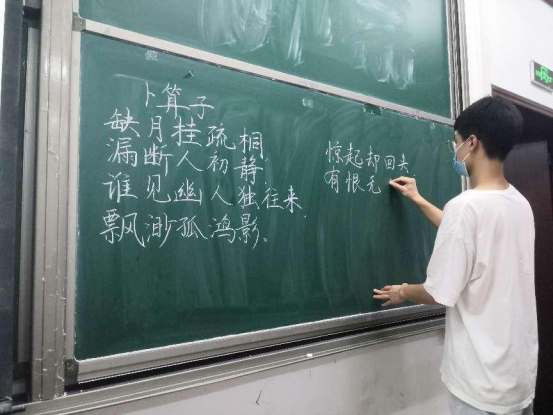 卜算子
缺月挂疏桐
漏断人初静
谁见幽人独往来,
飘渺孤鸿影。
惊起却回头,
有恨无